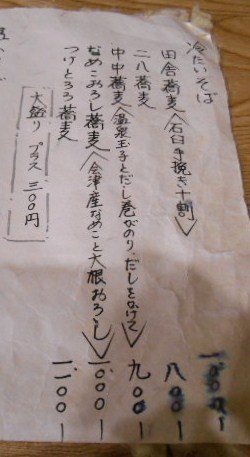 冷たいそば
田舎蕎麦〈石臼手挽き十割〉 一〇〇〇ー
二八蕎麦 八〇〇ー
中中蕎麦〈温泉玉子とだし巻がのり、だしをかけて〉 九〇〇ー
なめこおろし蕎麦〈会津産なめこと大根おろし〉 一〇〇〇ー
つけとろろ蕎麦 一一〇〇ー
大盛り プラス 三〇〇円